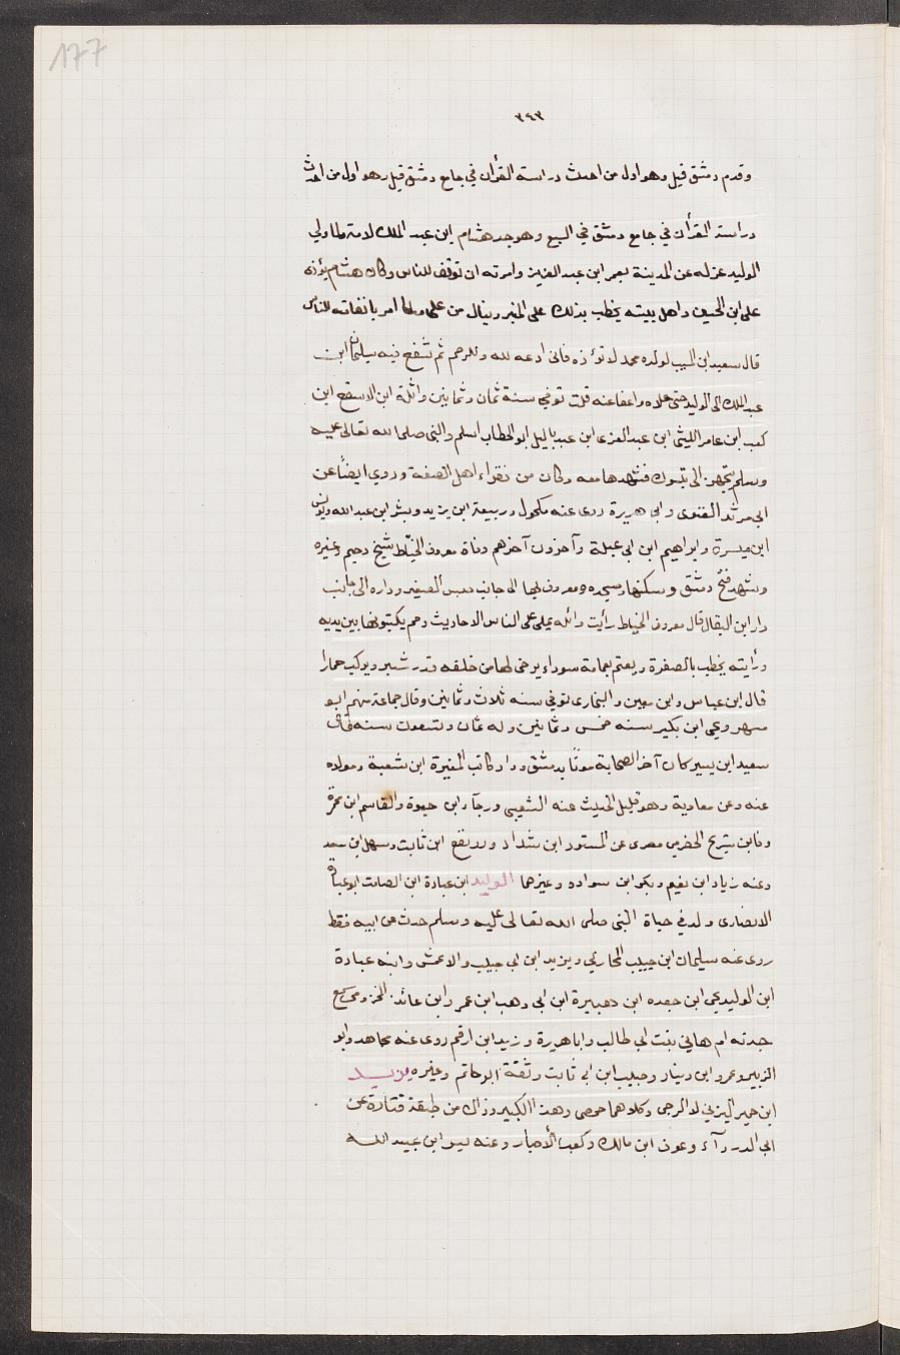 177
٣٤٣
وقدم دمشق قيل وهو اول من احدث دراسة القرأن في جامع دمشق قيل وهو اول من احدث
دراسة القرأن في جامع دمشق في السبع وهو جد هشام ابن عبد الملك لامه ولما ولي
الوليد عزله عن المدينة بعمر ابن عبد العزيز وامرته ان توقف للناس وكان هشام يؤذي
علي ابن الحسين واهل بيته يخطب بذلك على المنبر وينال من علي ولما امر بايقافه للناس
قال سعيد ابن المسيب لولده محمد لا تؤذه فاني ادعه لله وللرحم ثم تشفع فيه سليمان ابن
عبد الملك الى الوليد حتى خلاه واعفا عنه قلت توفي سنة ثمان وثمانين واثلة ابن الاسقع ابن
كعب ابن عامر الليثي ابن عبد العزى ابن عبد ياليل ابو الخطاب اسلم والنبي صلى الله تعالى عليه
وسلم يتجهز الى تبوك فشهدها معه وكان من فقراء اهل الصفة وروي ايضاً عن
ابي مرثد الغنوي وابي هريرة روى عنه مكحول وربيعة ابن يزيد وبشر ابن عبد الله ويونس
ابن ميسرة وابراهيم ابن ابي عبلة وآخرون آخرهم وفاة معروف الخياط شيخ دحيم وغيره
وشهد فتح دمشق وسكنها ومسجده ومعروف بها الى جانب حبس الصغير وداره الى جانب
دار ابن البقال قال معروف الخياط رأيت واثلة يملي على الناس الاحاديث وهم يكتبونها بين يديه
ورأيته يخطب بالصفرة ويعتم بعمامة سوداء يرخى لها من خلفه قدر شبر ويركب حمارا
قال ابن عباس وابن معين والبخاري توفي سنه ثلاث وثمانين وقال جماعة منهم ابو
مسهر ويحي ابن بكير سنه خمس وثمانين وله ثمان وتسعون سنه قال
سعيد ابن بسير كان آخر الصحابة موتًا بدمشق وراد كاتب المغيرة ابن شعبة ومولاه
عنه وعن معاوية وهو قليل الحديث عنه الشعبي ورجآء ابن حيوة والقاسم ابن
ابن شريح الحضرمي مصري عن المستورد ابن شداد ورويفع ابن ثابت وسهل ابن سعد
وعنه زياد ابن نعيم وبكر ابن سواده وغيرهما الوليد ابن عبادة ابن الصامت ابو عبادة
الانصاري ولد في حياة النبي صلى الله تعالى عليه وسلم حدث عن ابيه فقط
روى عنه سليمان ابن حبيب المحاربي ويزيد ابن ابي حبيب والاعمش وابنه عبادة
ابن الوليد يحي ابن جعده ابن هبيرة ابن ابي وهب ابن عمر وابن عائذ المخزومي سمع
جدته ام هاني بنت ابي طالب وابا هريرة وزيد ابن ارقم روى عنه مجاهد وابو
الزبير وعمرو ابن دينار وحبيب ابن ابي ثابت وثقة ابو حاتم وغيره يزيد
ابن خمير اليزني لا الرحبي وكلاهما حمصي وهذا الكبير وذاك من طبقة قتادة عن
ابي الدردآء وعوف ابن مالك وكعب الأحبار وعنه بسر ابن عبيد الله